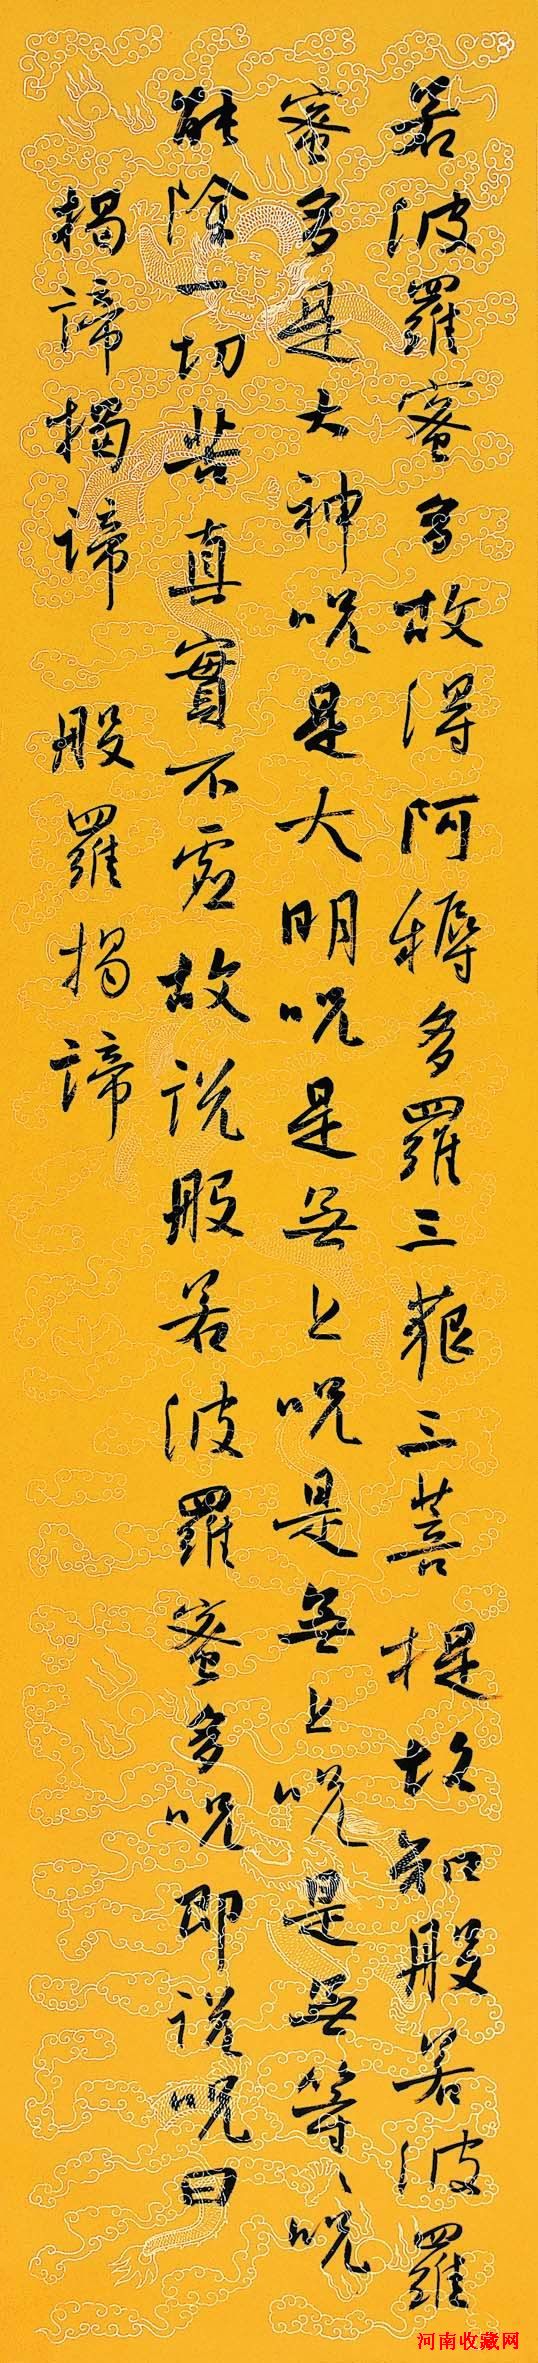 若波羅蜜多故得阿耨多羅三藐三菩提故知般若波羅
蜜多是大神呪是大明呪是無上呪是無上呪是無等〻呪
能除一切苦真實不虛故説般若波羅蜜多呪即説呪曰
揭諦揭諦 般羅揭諦
河南收藏网